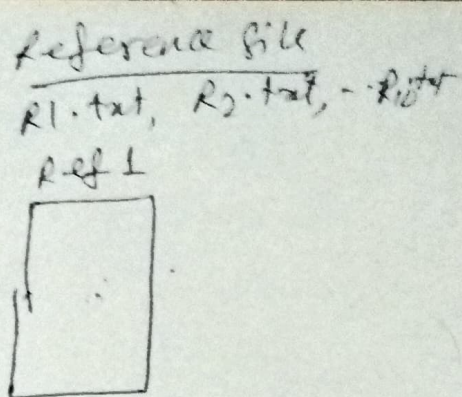 Reference file
R1.txt, R2.txt, -- R10.txt
Ref 1